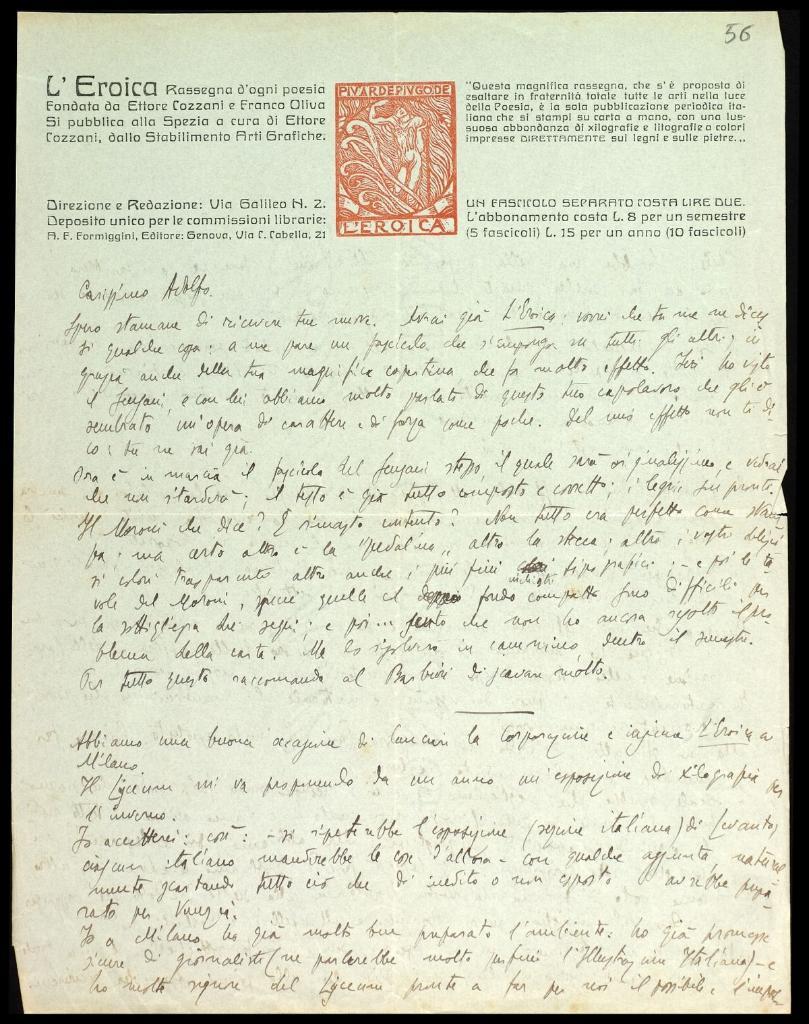 56
L'Eroica Rassegna d'ogni poesia
Fondata da Ettore Cozzani e Franco Oliva
Si pubblica alla Spezia a cura di Ettore
Cozzani, dallo Stabilimento Arti Grafiche.
Direzione e Redazione: Via Galileo N. 2.
Deposito unico per le commissioni librarie:
A. F. Formiggini, Editore: Genova, Via C. Cabella, 21
PIVARDEPIVGODE
L'EROICA
"Questa magnifica rassegna, che s'è proposta di
esaltare in fraternità totale tutte le arti nella luce
della Poesia, è la sola pubblicazione periodica ita-
liana che si stampi su carta a mano, con una lus-
suosa abbondanza di xilografie e litografie a colori
impresse DIRETTAMENTE sui legni e sulle pietre...
UN FASCICOLO SEPARATO COSTA LIRE DUE.
L'abbonamento costa L. 8 per un semestre
(5 fascicoli) L. 15 per un anno (10 fascicoli)
Carissimo Adolfo.
Spero stamane di ricevere tue nuove. Avrai già L'Eroica: vorrei che tu me ne dices
si qualche cosa: a me pare un fascicolo che s'imponga su tutti gli altri; in
grazia anche della tua magnifica copertina che fa molto effetto. Ieri ho visto
il e con lui abbiamo molto parlato di questo tuo capolavoro che gli è
sembrato un'opera di carattere e di forza come poche. Del mio effetto non ti di-
co: tu ne sai già.
Ora è in marcia il fascicolo del stesso, il quale sarà originalissimo, e vedrai
che non ritarderà; il testo è già tutto composto e corretto; i legni son pronti.
Il Moroni che dice? È rimasto contento? Non tutto era perfetto come stam
pa; ma certo altro è la "pedalina" altro la altro i vostri
si colori trasparenti altro anche i più fini tipografici; - e poi le ta
vole del Moroni, specie quelle col fondo compatto sono difficili per
la sottigliezza dei segni; e poi... senti che non ho ancora risolto il pro-
blema della carta. Ma lo risolverò in cammino dentro il semestre.
Per tutto questo raccomanda al Barbieri di scavare molto.
Abbiamo una buona occasione di lanciare la Corporazione e insieme L'Eroica a
Milano
Il Lyceum mi va proponendo da un anno un'esposizione di xilografia per
l'inverno.
Io accetterei: così: - si ripeterebbe l'esposizione (sezione italiana) di Levanto;
ciascun italiano manderebbe le cose d'allora - con qualche aggiunta, natural
mente scartando tutto ciò che di inedito o non esposto avrebbe prepa-
rato per Venezia.
Io a Milano ho già molto ben preparato l'ambiente: ho già promesse
sicure di giornalisti (ne parlerebbe molto perfino l'Illustrazione Italiana) - e
ho molte signore del Lyceum pronte a far per noi il possibile e